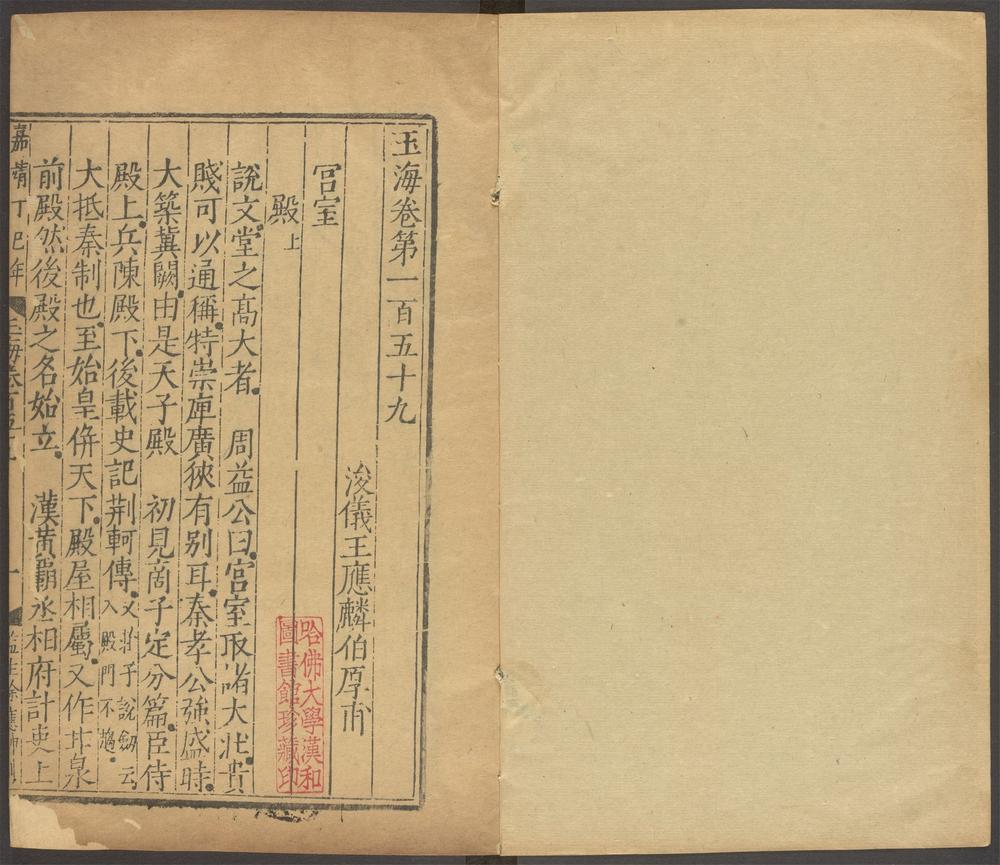 玉海卷第一百五十九
浚儀王應麟伯厚甫
宮室
殿上
說文堂之高大者 周益公曰宮室取諸大壯貴
賤可以通稱特崇庳廣狹有別耳秦孝公強盛時
大築冀闕由是天子殿 初見商子定分篇臣侍
殿上兵陳殿下後載史記荆軻傳又莊子說劒云入殿門不趨
大抵秦制也至始皇併天下殿屋相屬又作甘泉
前殿然後殿之名始立 漢黃霸丞相府計吏上
嘉靖丁巳年
玉海卷百五十
一
監生徐應
哈佛大學漢和
圖書館珍藏印